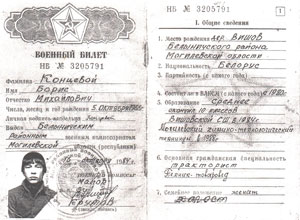 ВОЕННЫЙ БИЛЕТ
НБ № 3205791
Фамилия Концевой
Имя Борис
Отчество Михайлович
Число, месяц и год рождения 5 октября
Личная подпись владельца
Выдан Белыничским
Районным военным комиссариатом
Могилевской области (республики)
1984
НБ № 3205791
1
I. Общие сведения
1. Место рождения дер Вишов
Белыничского района
Могилевской области
2. Национальность Белорус
3. Партийность (с какого года)
4. Состоит ли в ВЛКСМ (с какого года) с 1980
5. Образование Среднее
окончил 10 классов
Вишовской СШ в 1984г.
техникум в 1988г.
6. Основная гражданская специальность
тракторист
7. Семейное положение женат